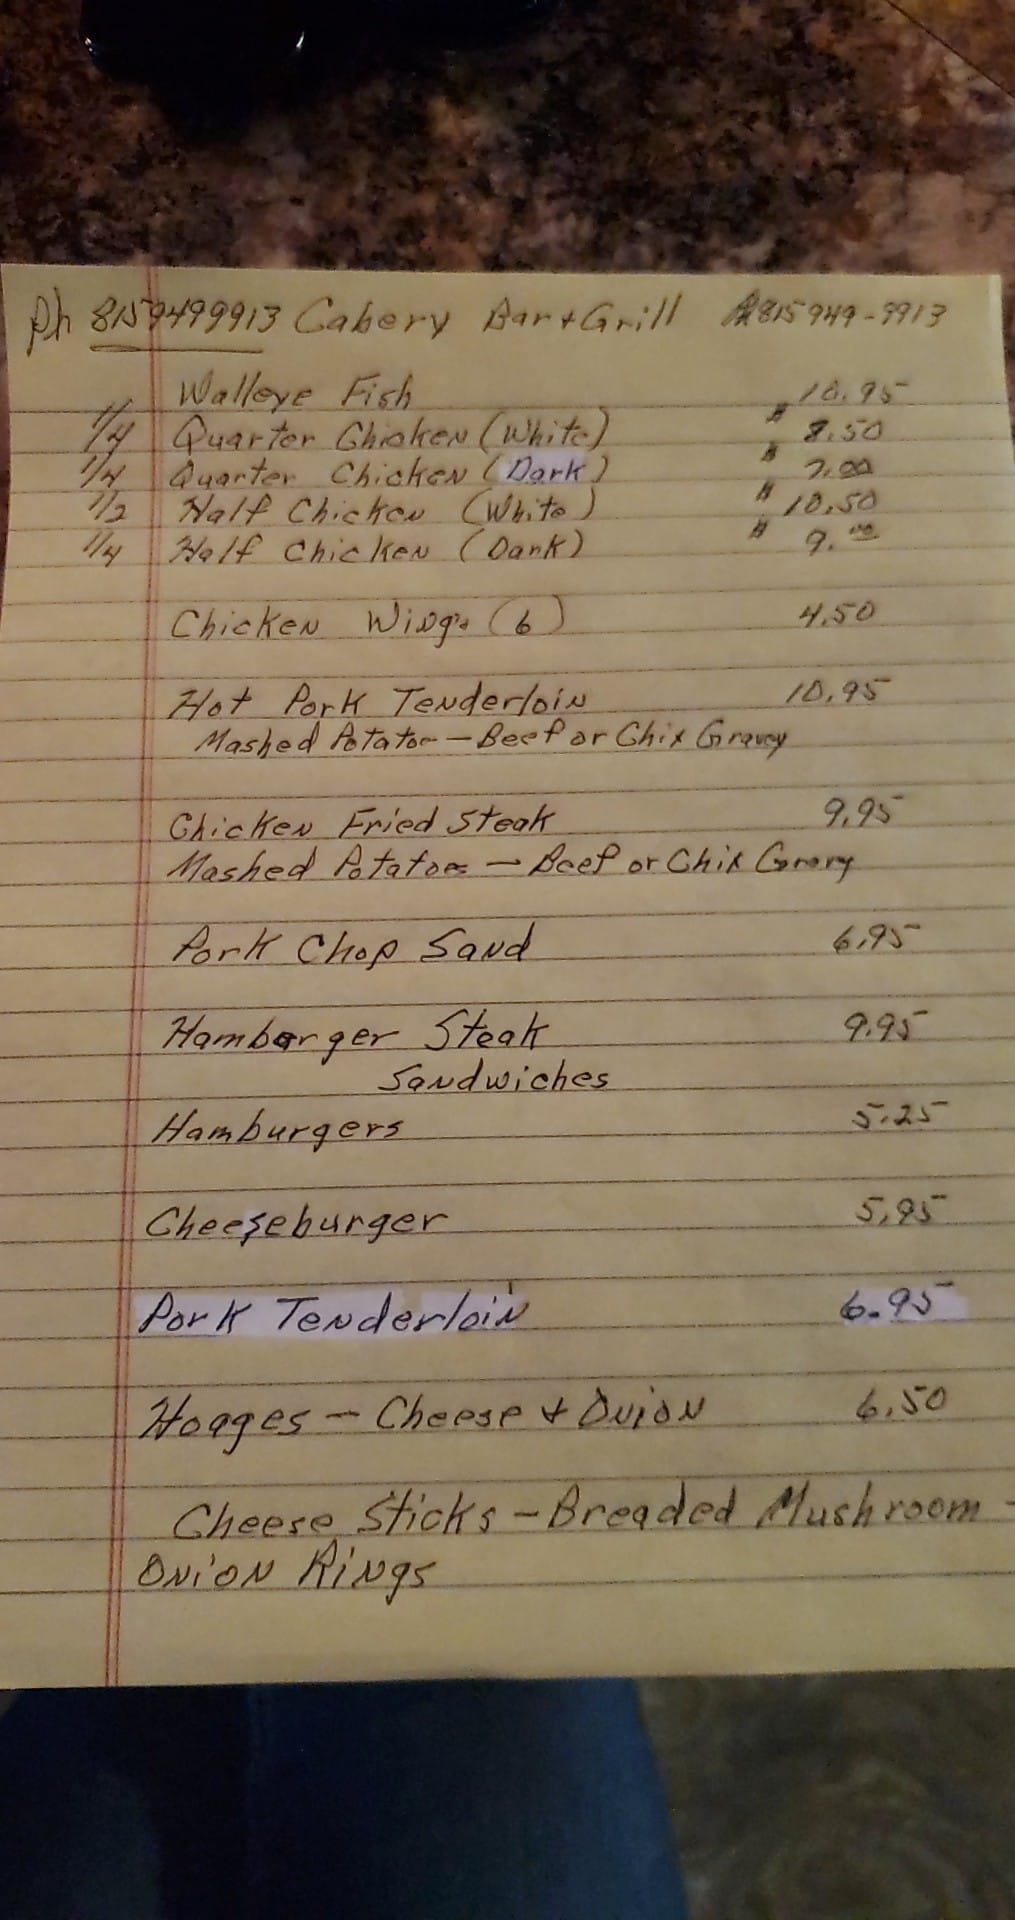 Ph 8159499913 Cabery Bar + Grill 815 949-9913
Walleye Fish 10.95
1/4 Quarter Chicken (White) $ 8.50
1/4 Quarter Chicken (Dark) $ 7.00
1/2 Half Chicken (White) $ 10.50
1/4 Half Chicken (Dark) $ 9.00
Chicken Wing's (6) 4.50
Hot Pork Tenderloin 10.95
Mashed Potatoe - Beef or Chix Gravey
Chicken Fried Steak 9.95
Mashed Potatoes - Beef or Chix Gravy
Pork Chop Sand 6.95
Hamburger Steak 9.95
Sandwiches
Hamburgers 5.25
Cheeseburger 5.95
Pork Tenderloin 6.95
Hoages - Cheese + Onion 6.50
Cheese Sticks - Breaded Mushroom -
Onion Rings